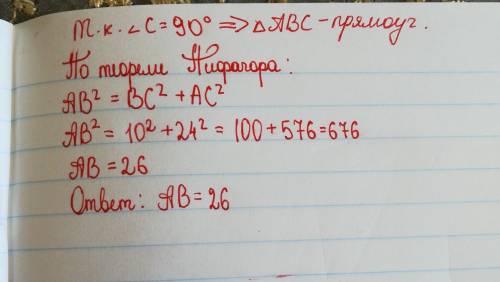 Т.к. ∠C = 90° => △ABC - прямоуг.
По теореме Пифагора:
AB² = BC² + AC²
AB² = 10² + 24² = 100 + 576 = 676
AB = 26
Ответ: AB = 26